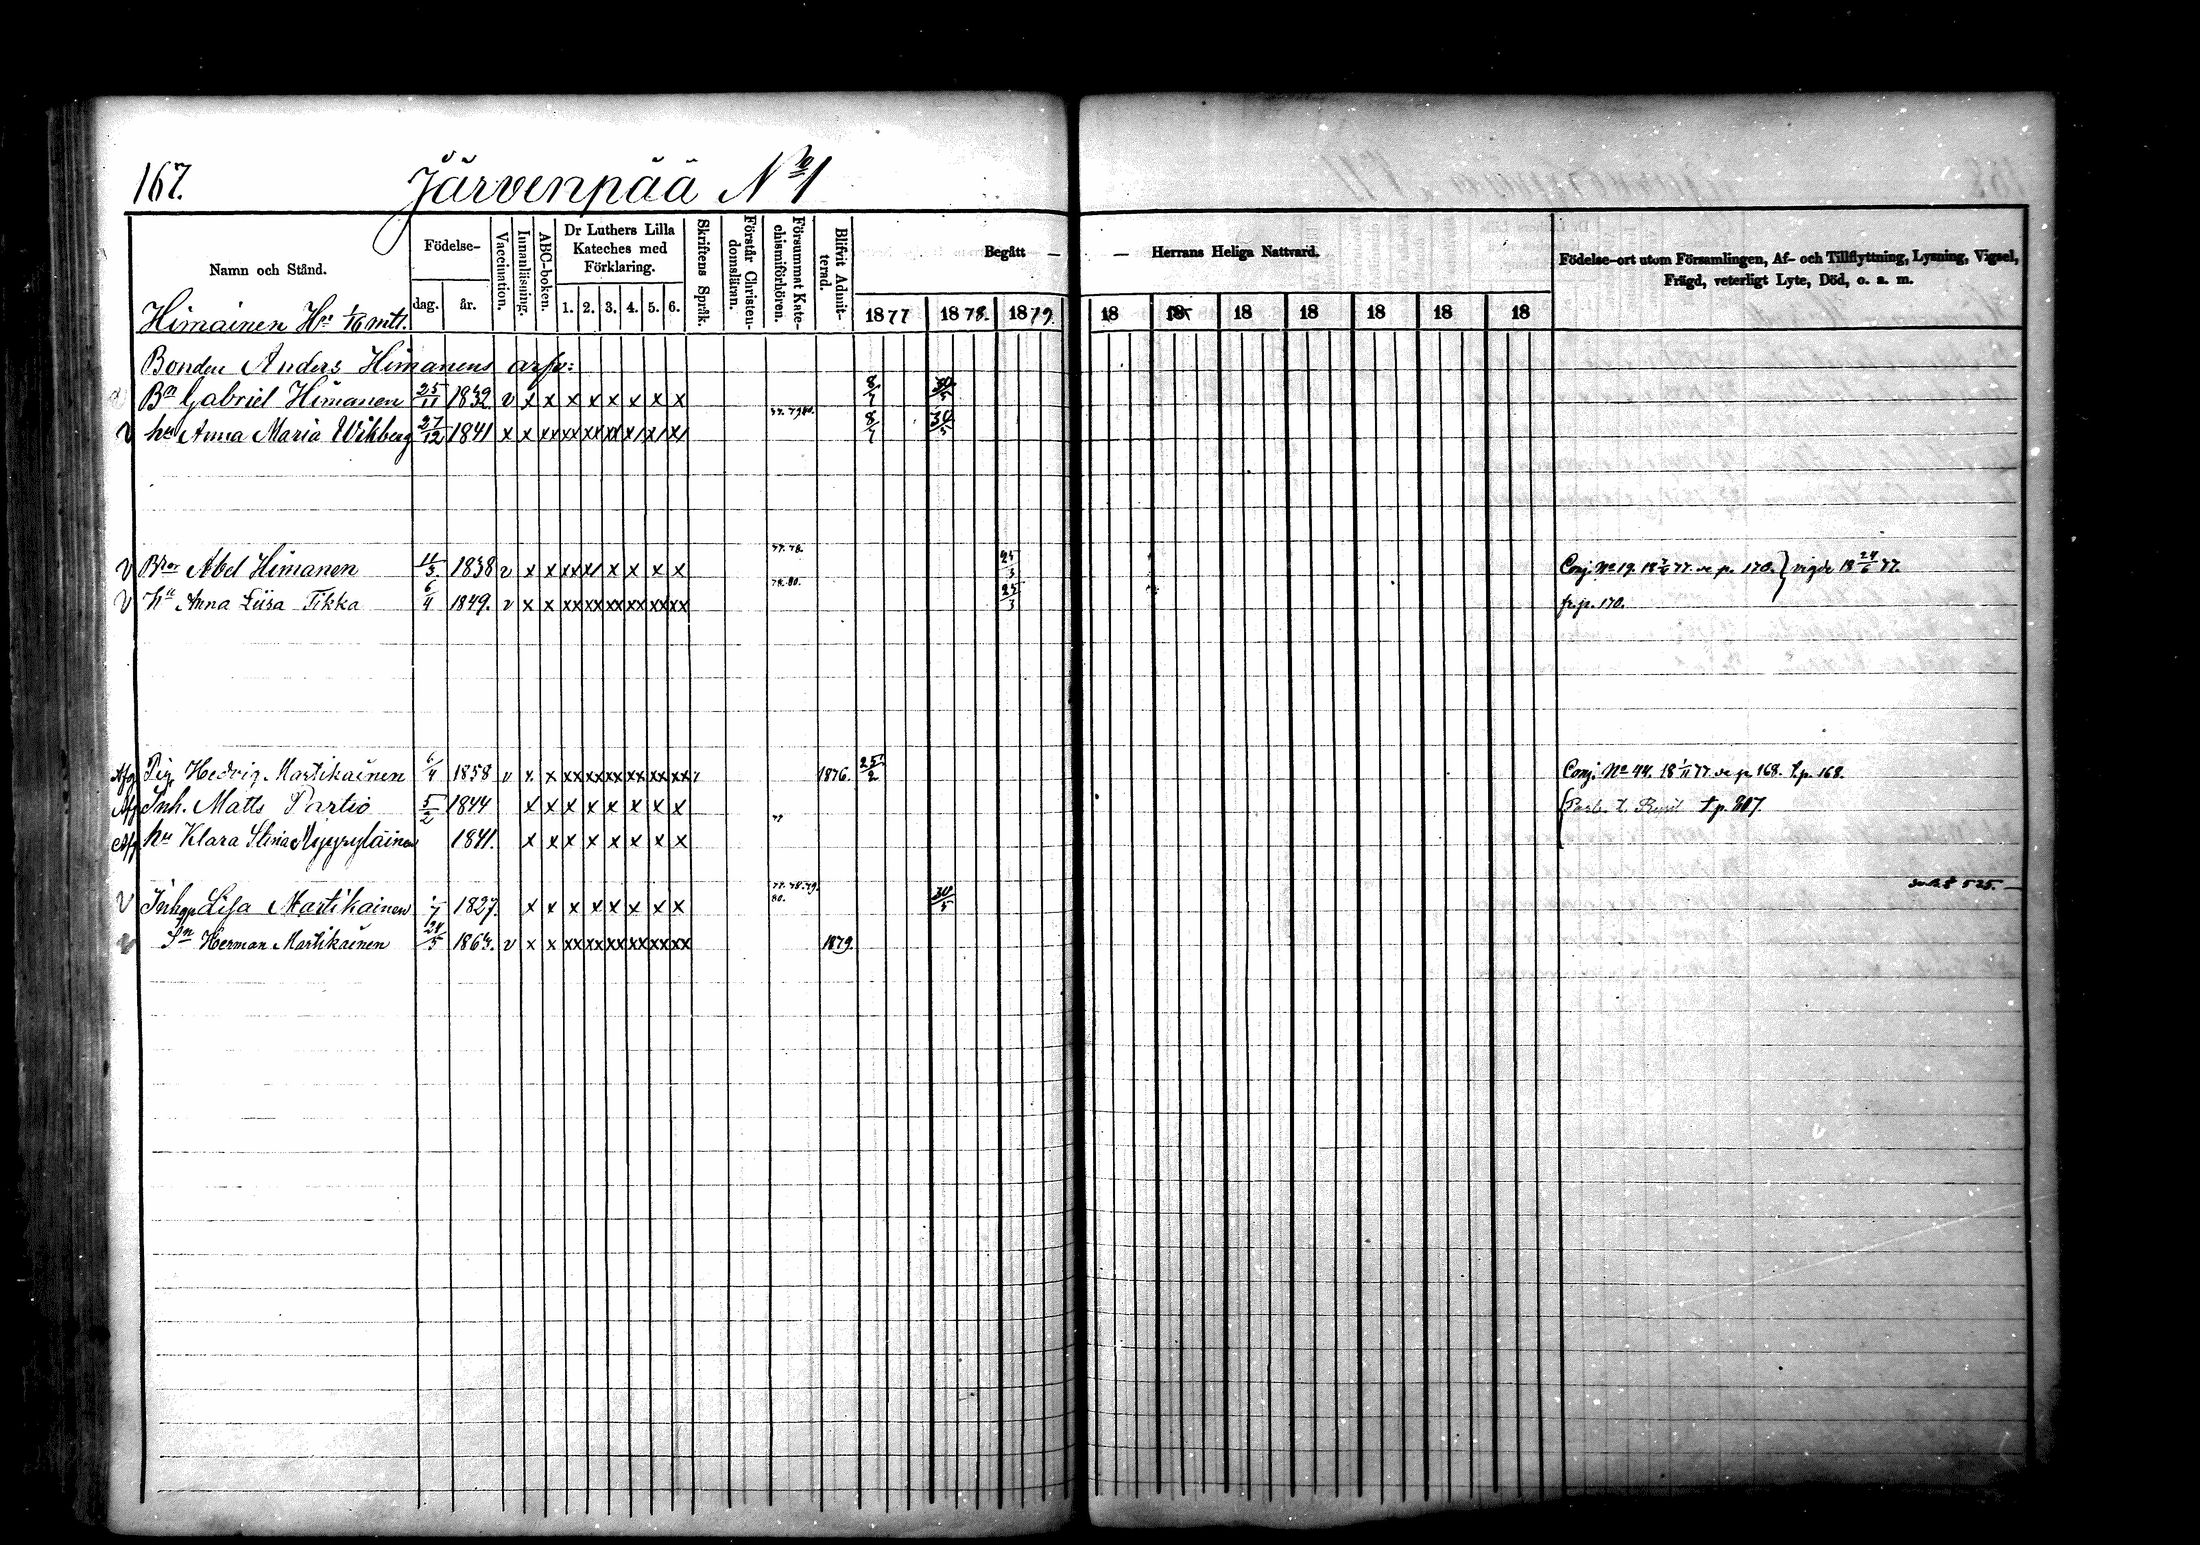 167. Järvenpää No 1
Namn och Stånd. Födelse- dag. år. Vaccination. Innanläsning. ABC-boken. Dr Luthers Lilla Kateches med Förklaring. 1. 2. 3. 4. 5. 6. Skriftens Språk. Förstår Christendomsläran. Försummat Katechismiförhören. Blifvit Admitterad. Begått — — Herrans Heliga Nattvard. Födelse-ort utom Församlingen, Af- och Tillflyttning, Lysning, Vigsel, Frägd, veterligt Lyte, Död, o. a. m.
1877 1878. 1879. 18 18 18 18 18 18 18
Himainen Hn 1/6 mtl.
Bonden Anders Himanens arfv:
Bn Gabriel Himanen 25/11 1832 v x x x x x x x x 8/7 30/5
v hu Anna Maria Wihberg 27/12 1841 x x xx xx xx xx x/ x/ x/ 77. 79 80. 8/7 30/5
v Bror Abel Himanen 11/3. 1838 v x x xx x/ x x x x 77. 78. 25/3 Conj. No 19. 18 77. se p. 170. } vigde 18 24/6 77.
v hu Anna Liisa Tikka 6/4 1849. v x x xx xx xx xx xx xx 78. 80. 25/3 fr. p. 170.
Afg Pig. Hedvig Martikainen 6/4 1858 v x x xx xx xx xx xx xx 1876. 25/2 Conj. No 44. 18 1/11 77 se p 168. t. p. 168.
Afg Inh. Matts Partio 5/2 1844 x x x x x x x x t p.
Afg hu Klara Stina 1841. x x x x x x x x
v Inhqp Lisa Martikainen 1827. x x x x x x x x 77. 78. 79. 80. 30/5 525.
v Sn Herman Martikainen 24/5 186 v x x xx xx xx xx xx xx 1879.